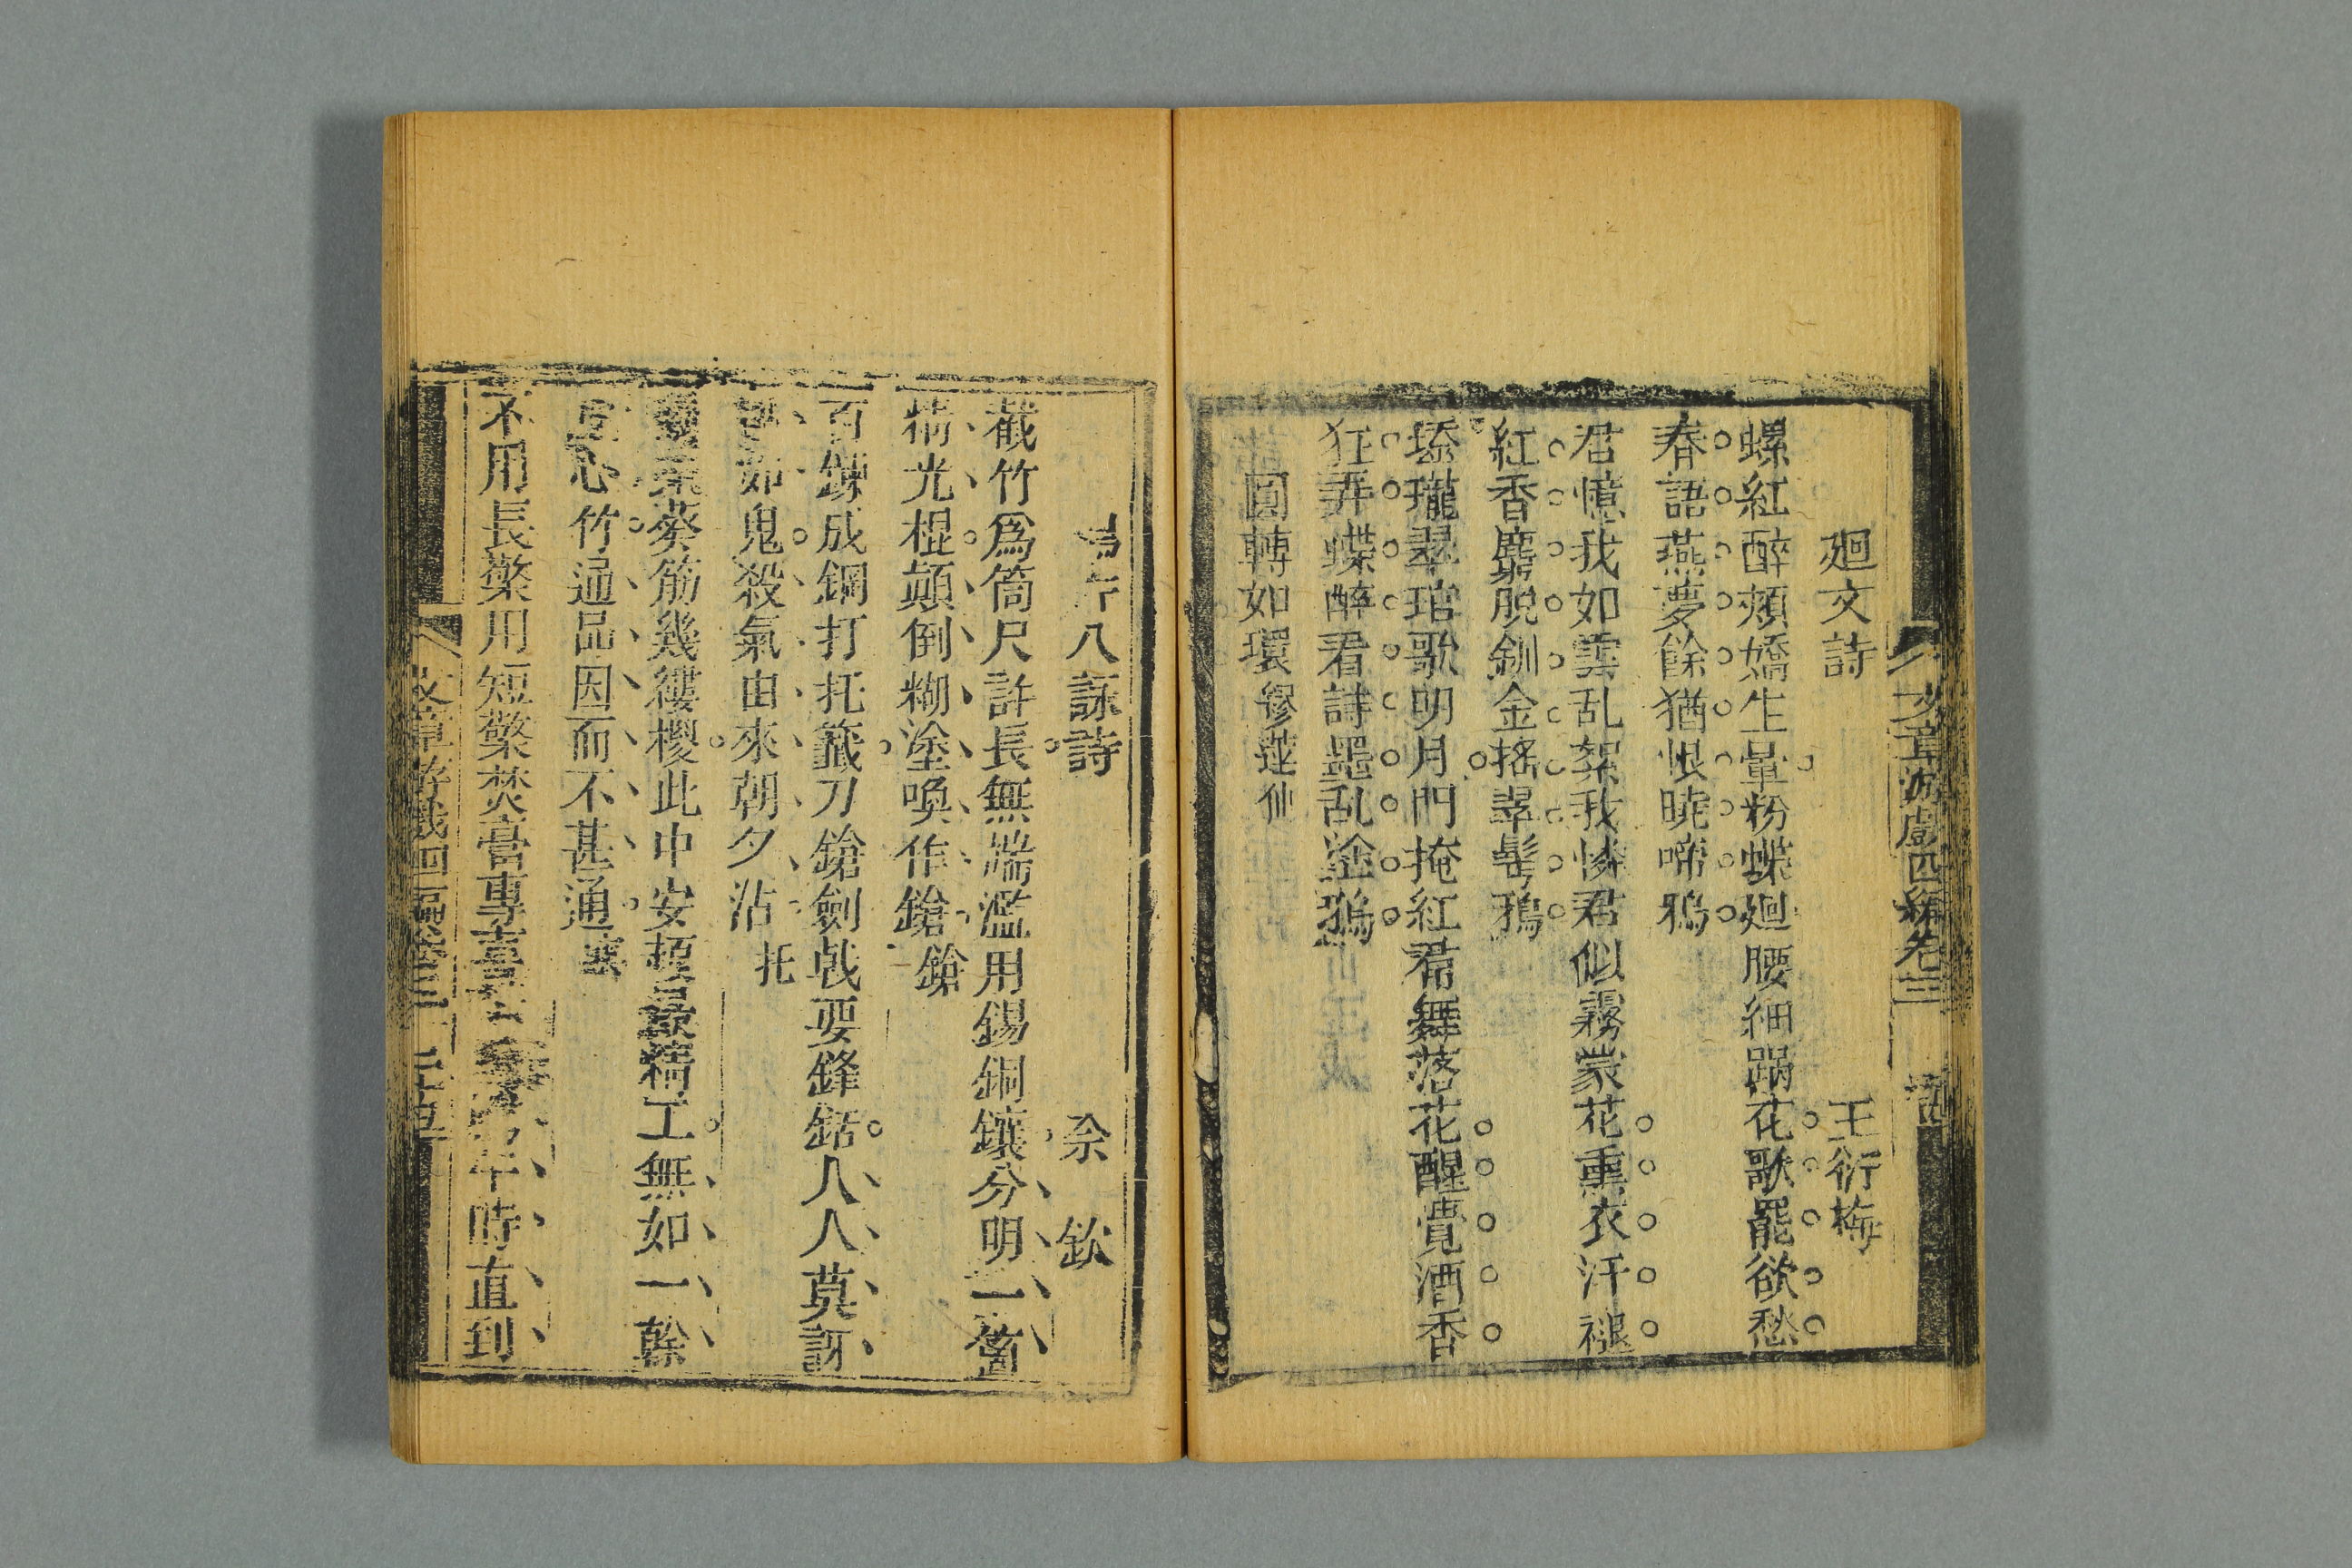 文章游戲四編卷三
廻文詩　王衍梅
螺紅醉頰嬌生暈粉蝶廻腰細蹋花歌罷欲愁
春語燕夢餘猶恨曉啼鴉
君憶我如雲乱絮我憐君似霧蒙花熏衣汗褪
紅香麝脫釧金搖翠髩鴉
瓏翠琯歌明月門掩紅君舞落花醒覺酒香
狂弄蝶醉看詩墨乱塗鴉
圓轉如環 繆蓮仙
八詠詩　余欽
截竹爲筒尺許長無端濫用錫銅鑲分明一箇
精光棍顛倒糊塗喚作鎗 鎗
百鍊成鋼打托籤刀鎗劍戟要鋒銛人人莫訝
如鬼殺氣由來朝夕沾 托
葵筋幾縷椶此中安頓最精工無如一幹
空心竹通品因而不甚通
不用長檠用短檠焚膏專午時直到
文章游戲四編卷三